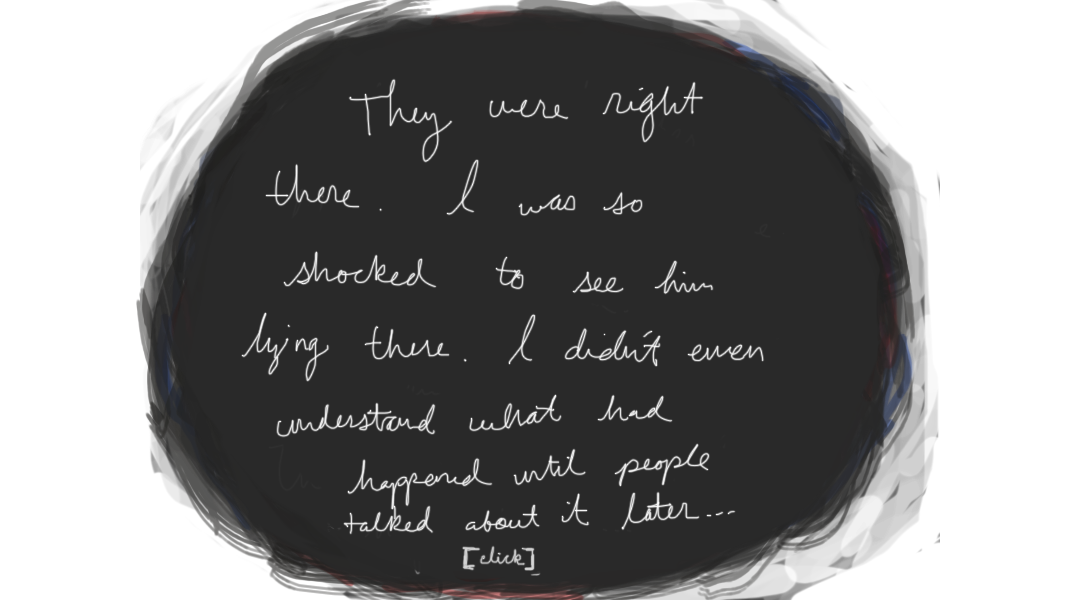 They were right
there. I was so
shocked to see him
lying there. I didn't even
understand what had
happened until people
talked about it later...
[click]